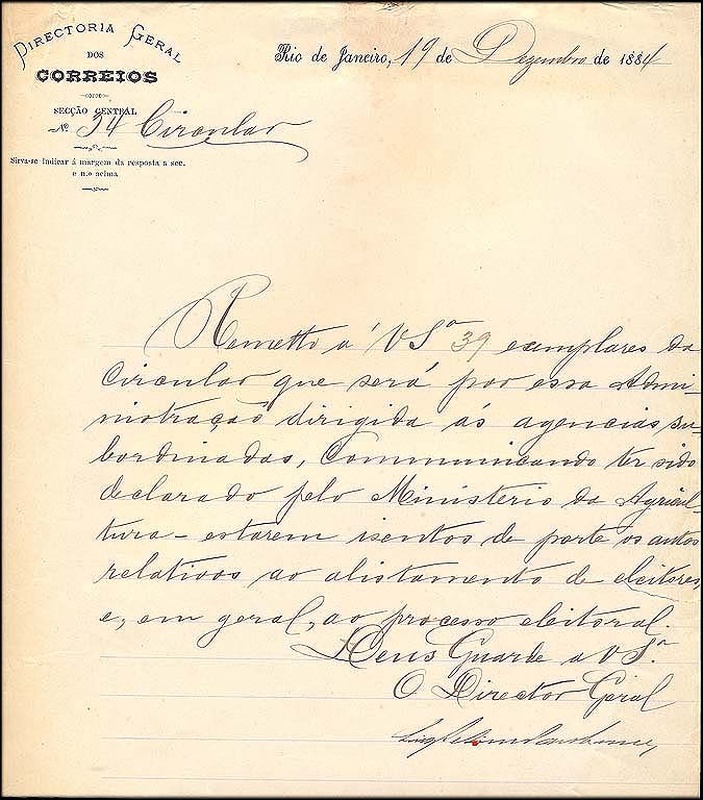 DIRECTORIA GERAL
DOS
CORREIOS
SECÇÃO CENTRAL
Nº 34 Circular
Sirva-se indicar á margem da resposta a sec.
e n.o acima
Rio de Janeiro, 19 de Dezembro de 1884
Remetto a' V Sª 39 exemplares da
Circular que será por essa Admi-
nistração dirigida ás agencias su-
bordinadas, Communicando ter sido
declarado pelo Ministerio da Agricul-
tura - estarem isentos de porte os autos
relativos ao alistamento de eleitores,
e, em geral, ao processo eleitoral.
Deus Guarde a V Sª.
O Director Geral